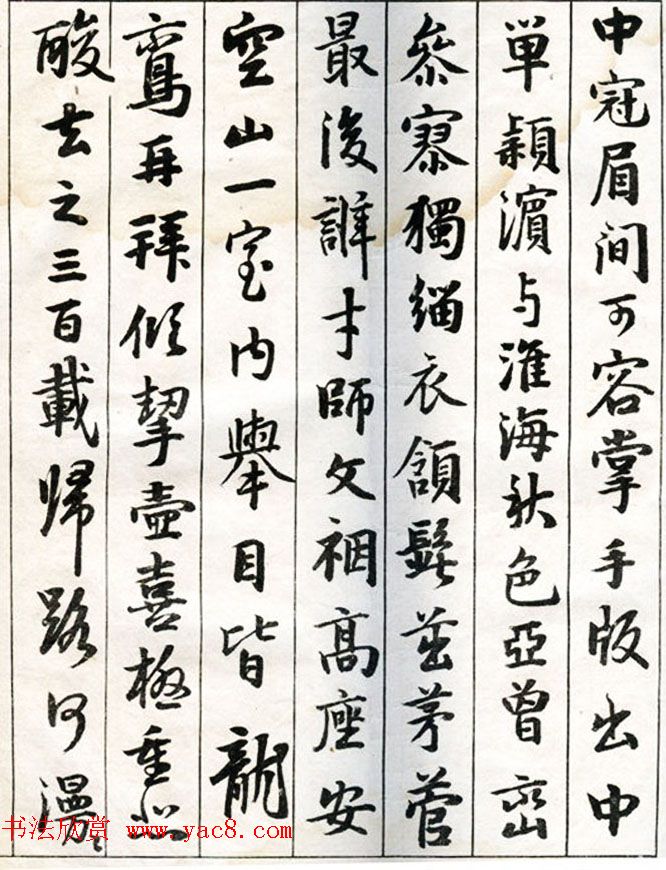 中冠眉间可容掌手版出中
單頴濵与淮海秋色亞曾巒
叅寥獨緇衣頷髭茁茅菅
最後誰才師文裀高座安
空山一室内舉目皆龍
鸞再拜傾挈壺喜極重悲
酸去之三百載歸路何漫々
书法欣赏 www.yac8.com